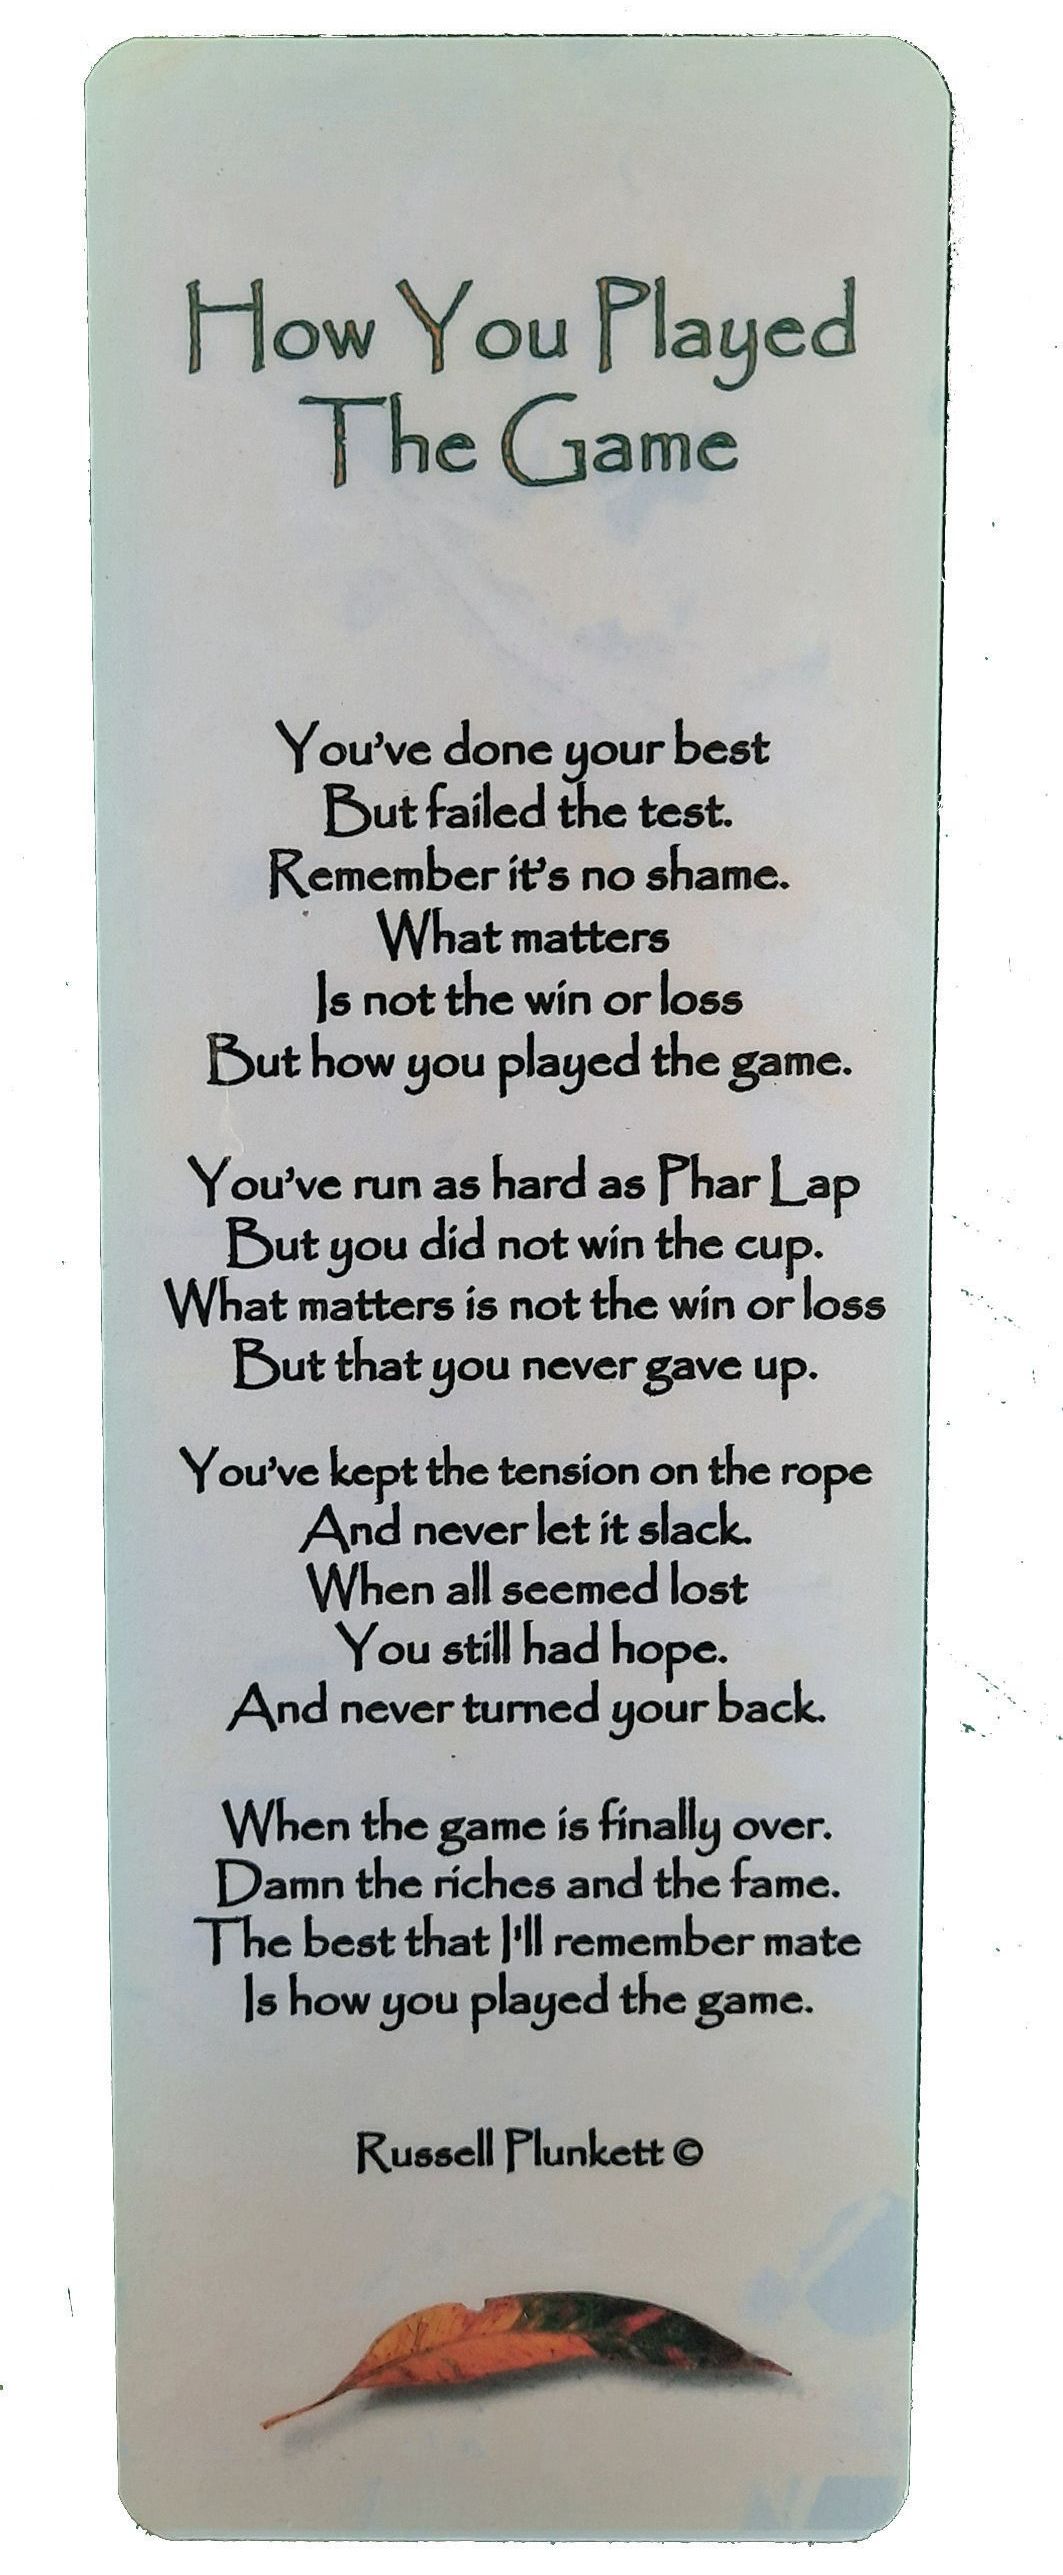 How You Played
The Game
You've done your best
But failed the test.
Remember it's no shame.
What matters
Is not the win or loss
But how you played the game.
You've run as hard as Phar Lap
But you did not win the cup.
What matters is not the win or loss
But that you never gave up.
You've kept the tension on the rope
And never let it slack.
When all seemed lost
You still had hope.
And never turned your back.
When the game is finally over.
Damn the riches and the fame.
The best that I'll remember mate
Is how you played the game.
Russell Plunkett ©